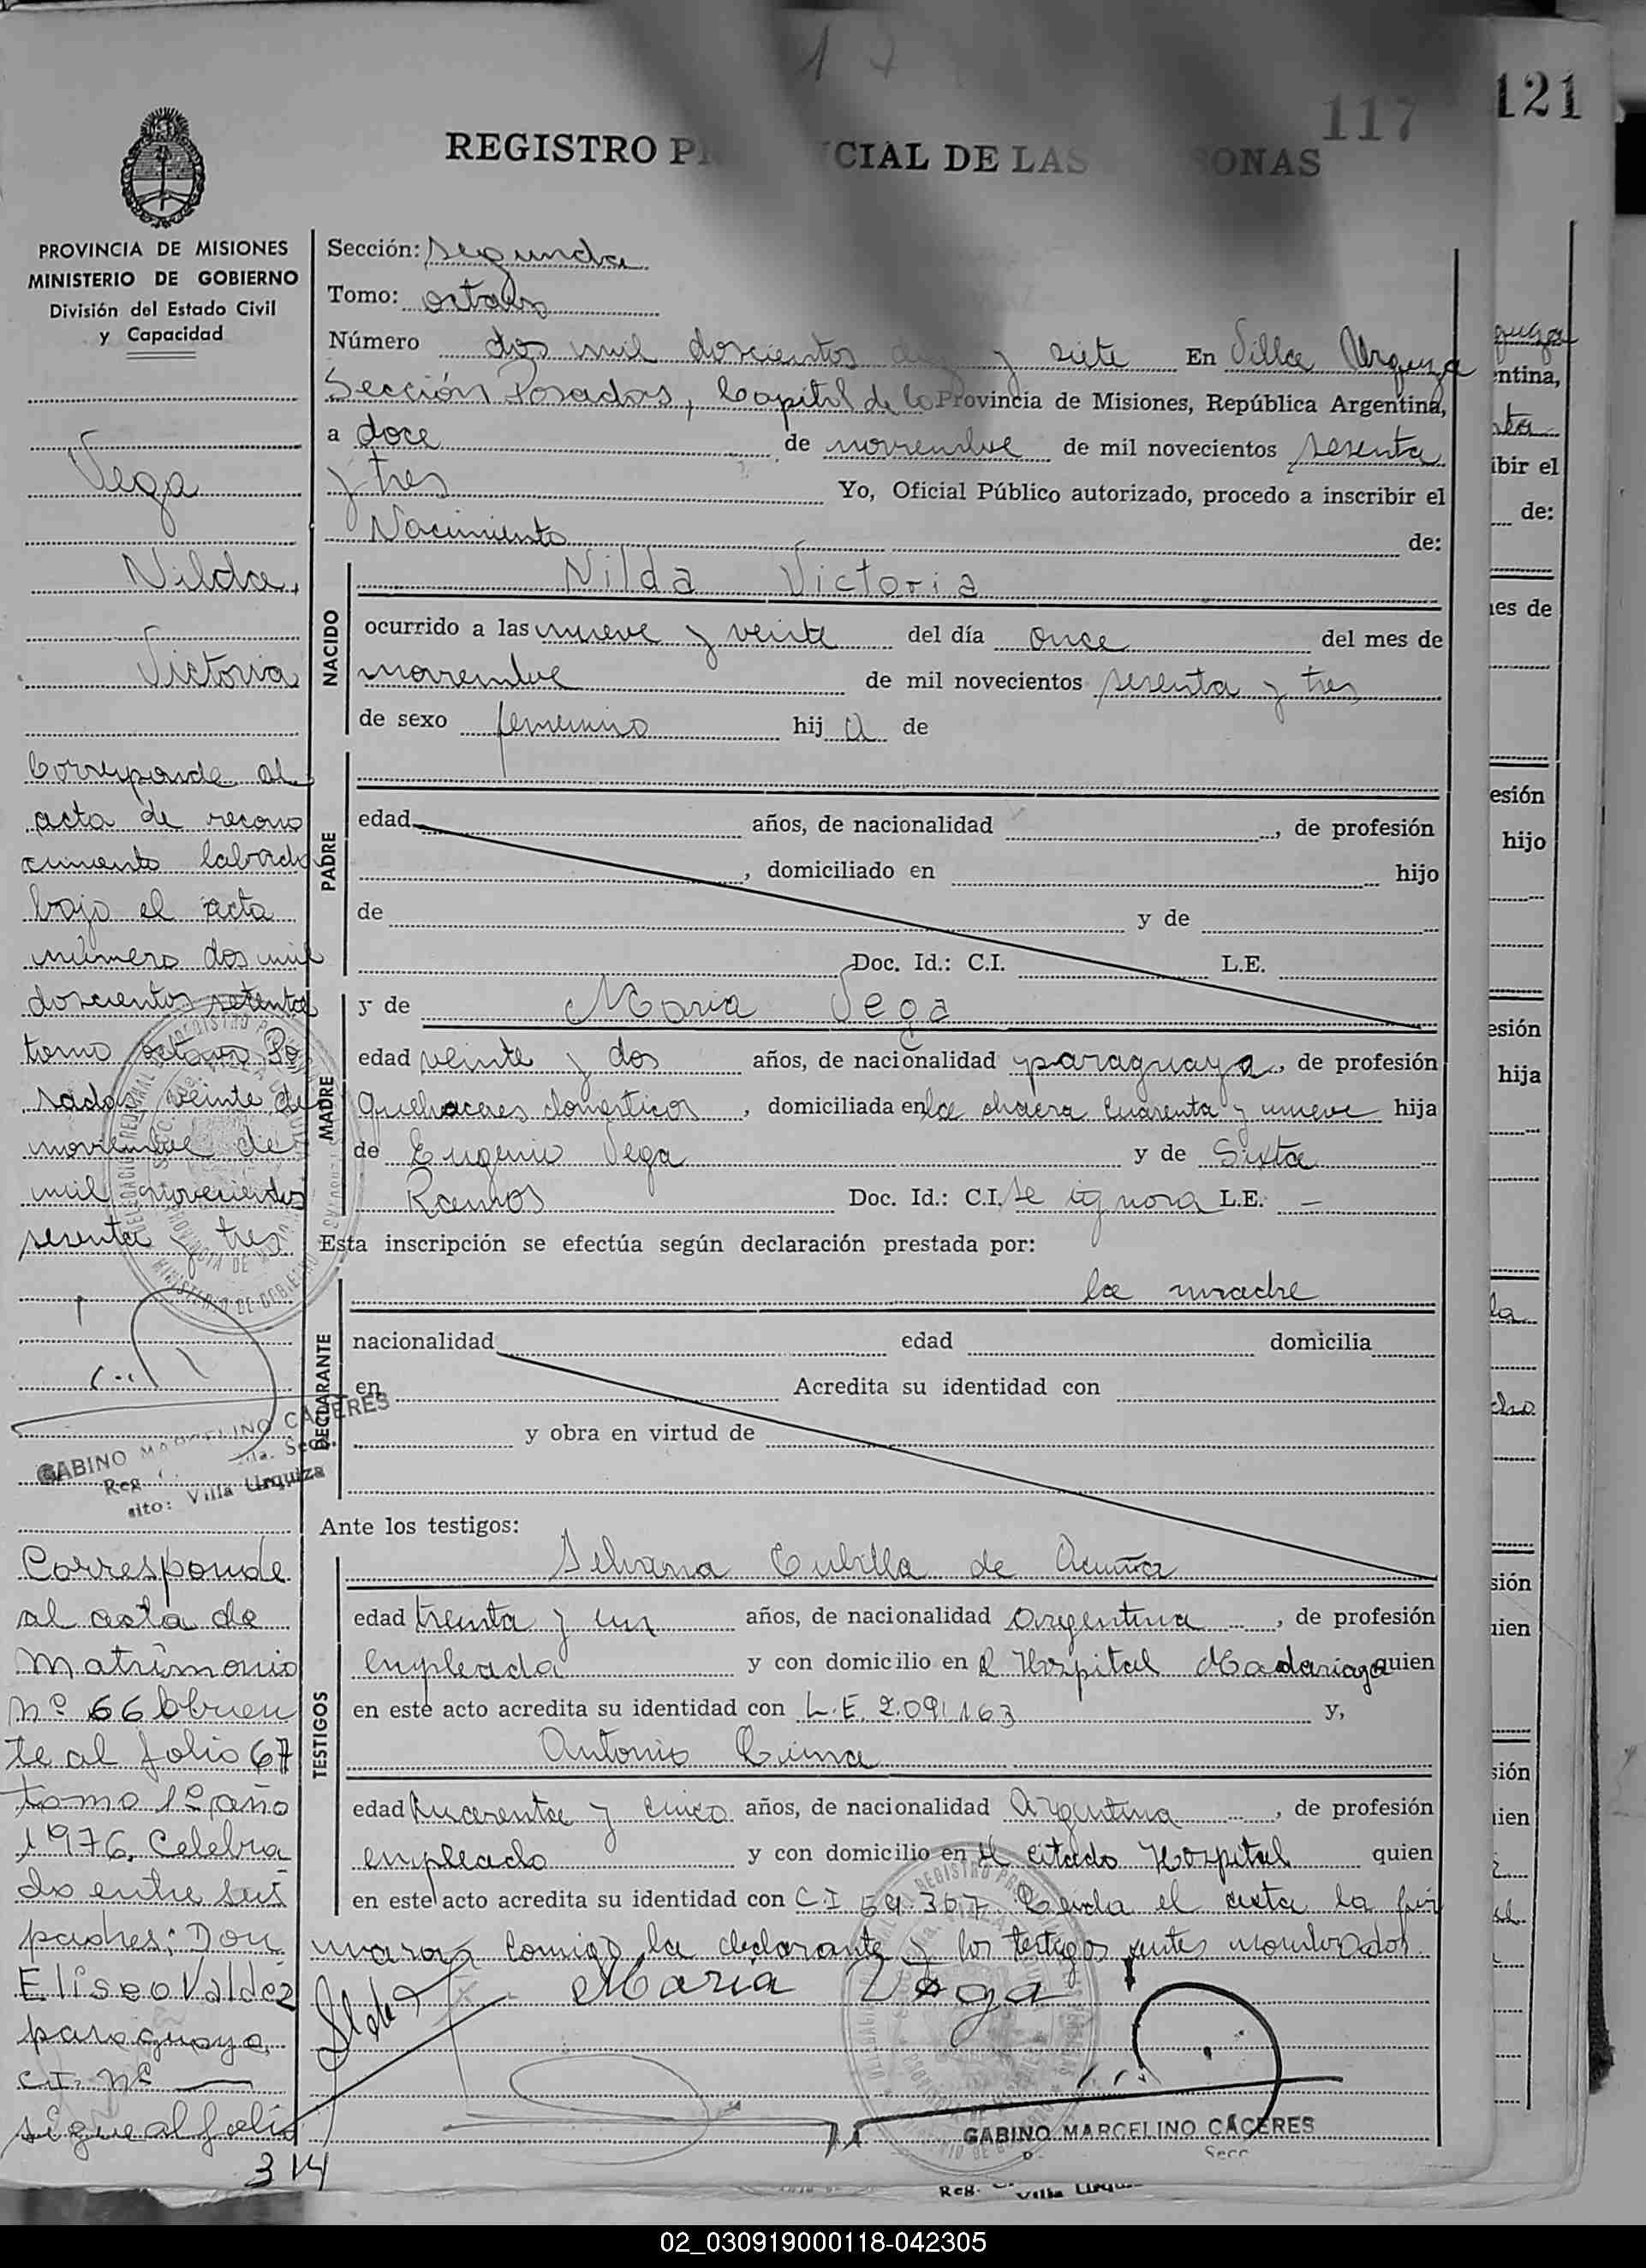 117
121
REGISTRO P CIAL DE LAS SONAS
PROVINCIA DE MISIONES
MINISTERIO DE GOBIERNO
División del Estado Civil
y Capacidad
Vega
Nilda,
Victoria
Corresponde al
acta de recono
cimiento labrado
bajo el acta
número dos mil
doscientos setenta
tomo octavo Po
sadas, veinte de
noviembre de
mil novecientos
sesenta y tres
GABINO MARCELINO CACERES
Reg. Secc.
sito: Villa Urquiza
Corresponde
al acta de
Matrimonio
Nº 66 obrien
te al folio 67
tomo 1º año
1976. Celebra
do entre sus
padres: Don
Eliseo Valdéz
paraguayo,
C.I. Nº —
sigue al folio
314
Sección: Segunda
Tomo: octavo
Número dos mil doscientos y siete En Villa Urquiza
Sección Posadas, Capital de la Provincia de Misiones, República Argentina,
a doce de noviembre de mil novecientos sesenta
y tres Yo, Oficial Público autorizado, procedo a inscribir el
Nacimiento de:
NACIDO
Nilda Victoria
ocurrido a las nueve y veinte del día once del mes de
noviembre de mil novecientos sesenta y tres
de sexo femenino hij a de
PADRE
edad años, de nacionalidad , de profesión
, domiciliado en hijo
de y de
Doc. Id.: C.I. L.E.
MADRE
y de Maria Vega
edad veinte y dos años, de nacionalidad paraguaya, de profesión
Quehaceres domesticos, domiciliada en la chacra cuarenta y nueve hija
de Eugenio Vega y de Sixta
Ramos Doc. Id.: C.I. se ignora L.E. —
Esta inscripción se efectúa según declaración prestada por:
DECLARANTE
la madre
nacionalidad edad domicilia
en Acredita su identidad con
y obra en virtud de
Ante los testigos:
TESTIGOS
Silvana Cubilla de Acuña
edad treinta y un años, de nacionalidad Argentina, de profesión
empleada y con domicilio en el Hospital Madariaga quien
en este acto acredita su identidad con L.E. 2.091.163 y,
Antonio
edad cuarenta y cinco años, de nacionalidad Argentina, de profesión
empleado y con domicilio en el citado Hospital quien
en este acto acredita su identidad con C I 59.307. Leida el acta la fir
maron conmigo la declarante y los testigos antes nombrados.
Maria Vega
GABINO MARCELINO CACERES
Secc
Reg. Villa
02_030919000118-042305